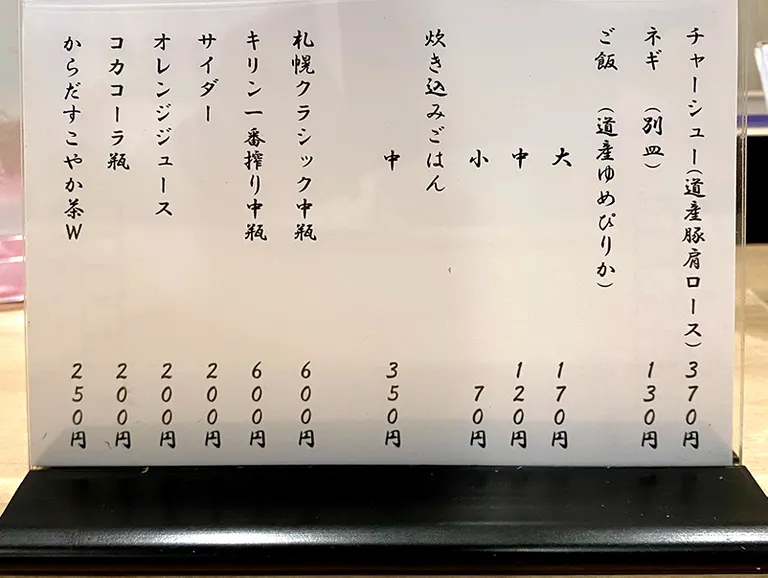 チャーシュー(道産豚肩ロース) 370円
ネギ (別皿) 130円
ご飯 (道産ゆめぴりか)
大 170円
中 120円
小 70円
炊き込みごはん
中 350円
札幌クラシック中瓶 600円
キリン一番搾り中瓶 600円
サイダー 200円
オレンジジュース 200円
コカコーラ瓶 200円
からだすこやか茶W 250円